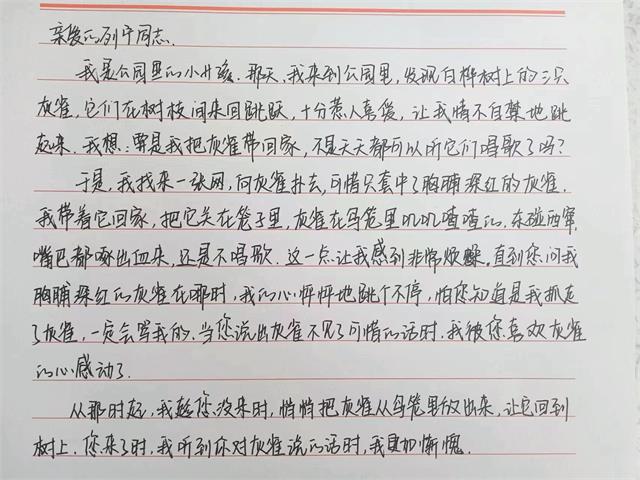 亲爱的列宁同志.
我是公园里的小男孩. 那天, 我来到公园里, 发现白桦树上的三只
灰雀, 它们在树枝间来回跳跃, 十分惹人喜爱, 让我情不自禁地跳
起来. 我想: 要是我把灰雀带回家, 不是天天都可以听它们唱歌了吗?
于是, 我找来一张网, 向灰雀扑去, 可惜只套中了胸脯深红的灰雀.
我带着它回家, 把它关在笼子里, 灰雀在鸟笼里叽叽喳喳的, 东碰西窜,
嘴巴都啄出血来, 还是不唱歌. 这一点让我感到非常烦躁. 直到您问我
胸脯深红的灰雀在哪时, 我的心怦怦地跳个不停, 怕您知道是我抓走
了灰雀, 一定会骂我的. 当您说出灰雀不见了可惜的话时, 我被您喜欢灰雀
的心感动了.
从那时起, 我趁您没来时, 悄悄把灰雀从鸟笼里放出来, 让它回到
树上. 您来了时, 我听到你对灰雀说的话时, 我更加惭愧.